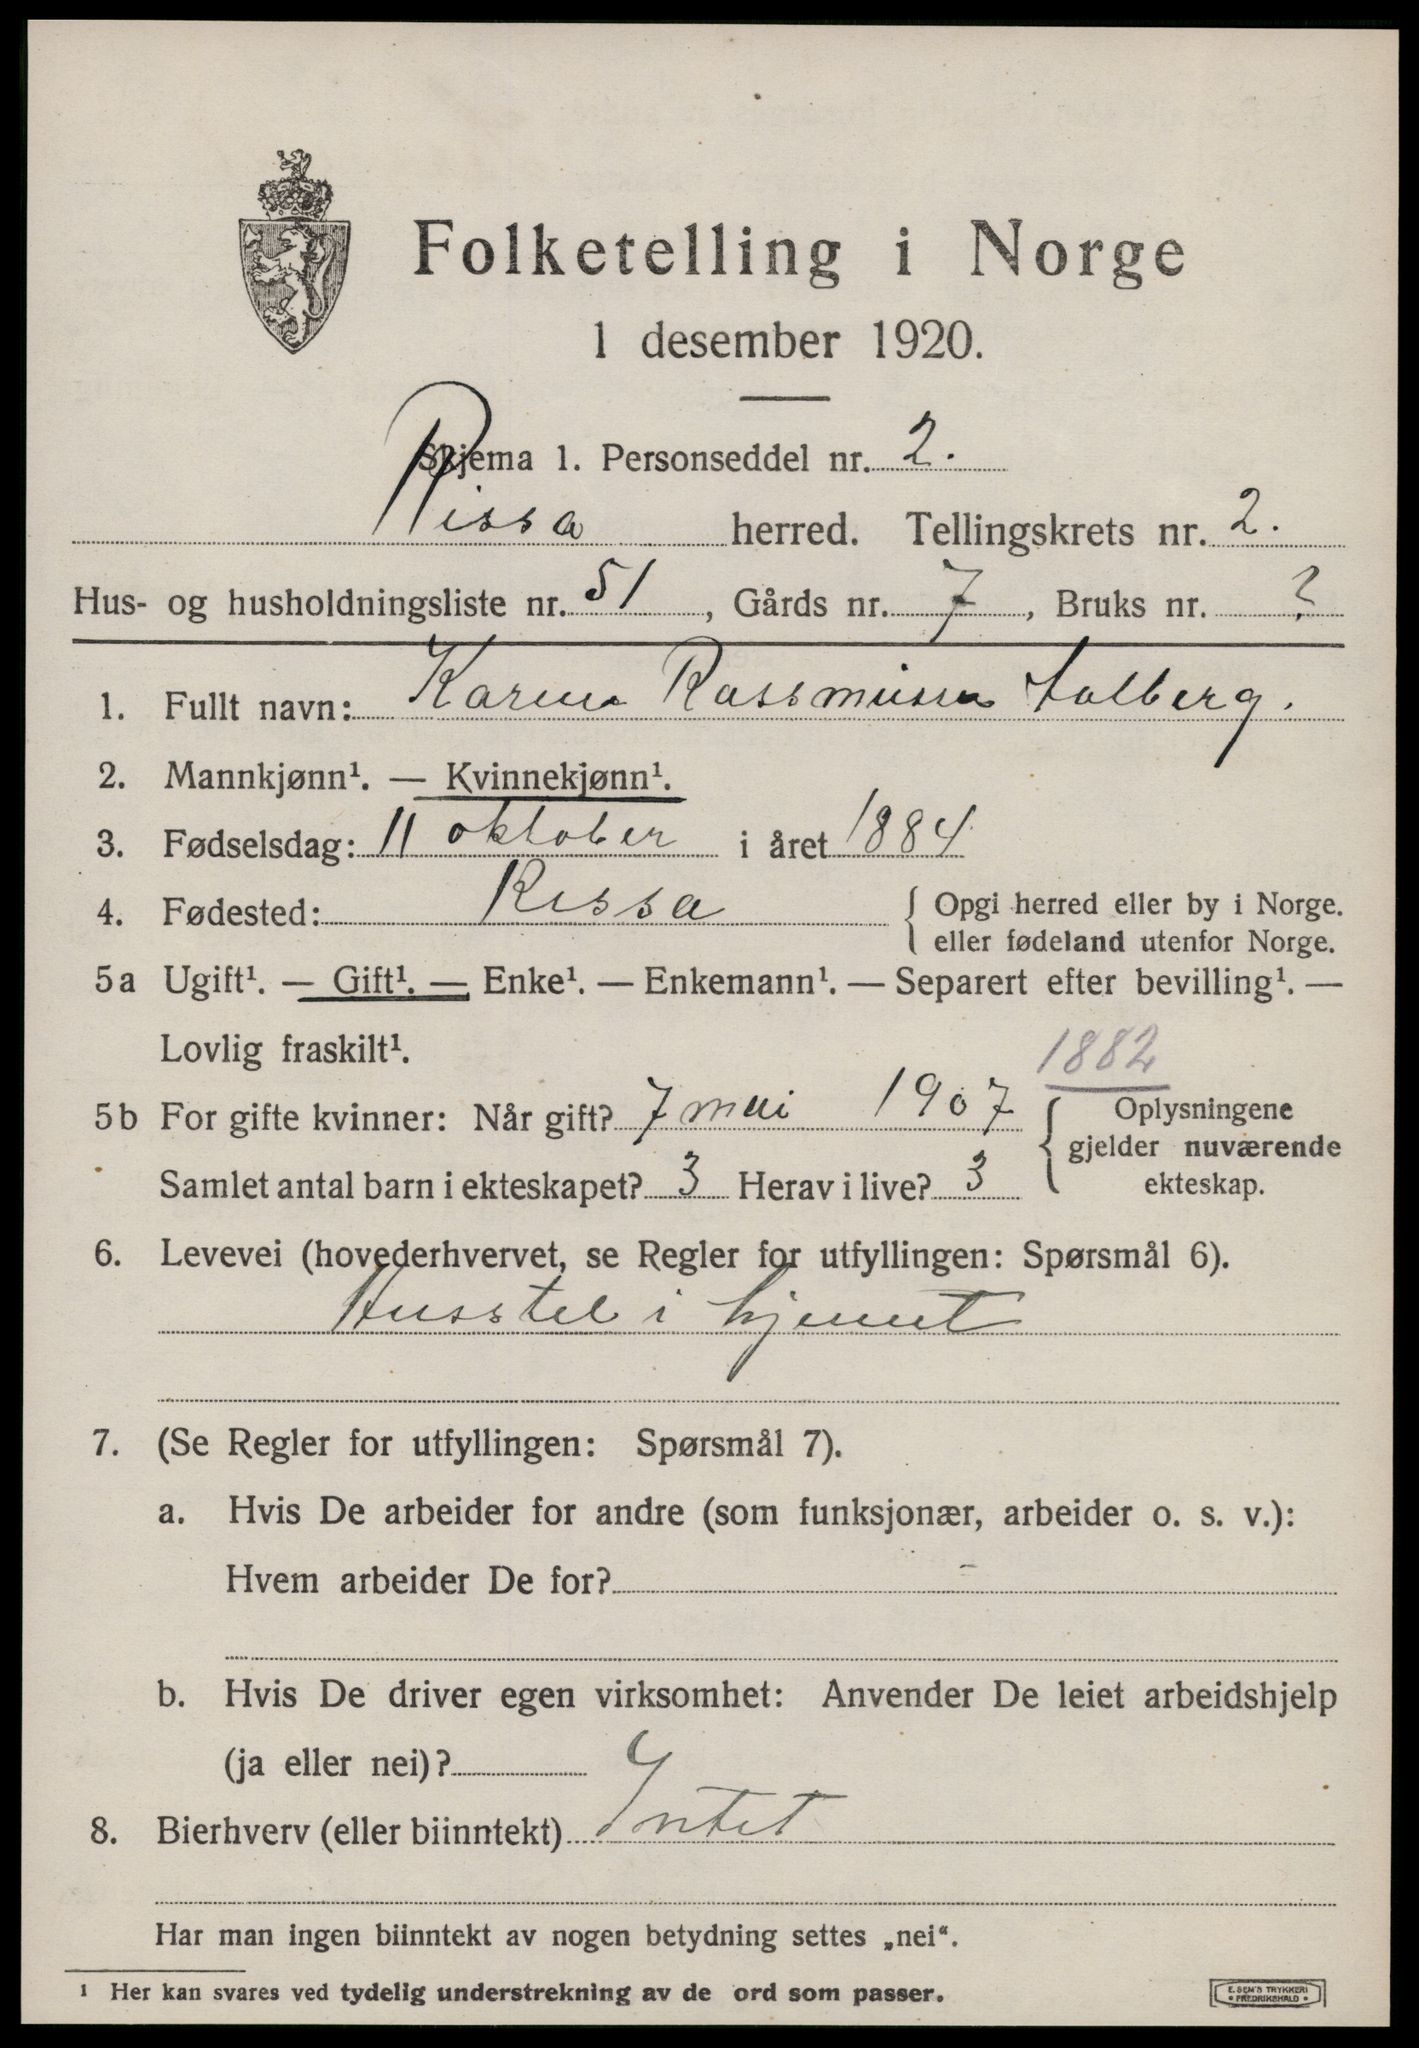 Folketelling i Norge
1 desember 1920.
Skjema 1. Personseddel nr. 2.
Rissa herred. Tellingskrets nr. 2.
Hus- og husholdningsliste nr. 51, Gårds nr. 7, Bruks nr. ?
1. Fullt navn: Karen Rassmussen Solberg.
2. Mannkjønn¹. — Kvinnekjønn¹.
3. Fødselsdag: 11 oktober i året 1884
4. Fødested: Rissa { Opgi herred eller by i Norge.
eller fødeland utenfor Norge.
5a Ugift¹. — Gift¹. — Enke¹. — Enkemann¹. — Separert efter bevilling¹. —
Lovlig fraskilt¹.
1882
5b For gifte kvinner: Når gift? 7 mai 1907 { Oplysningene
gjelder nuværende
Samlet antal barn i ekteskapet? 3 Herav i live? 3 ekteskap.
6. Levevei (hovederhvervet, se Regler for utfyllingen: Spørsmål 6).
Husstel i hjemmet
7. (Se Regler for utfyllingen: Spørsmål 7).
a. Hvis De arbeider for andre (som funksjonær, arbeider o. s. v.):
Hvem arbeider De for? –
b. Hvis De driver egen virksomhet: Anvender De leiet arbeidshjelp
(ja eller nei)?
8. Bierhverv (eller biinntekt) Intet
Har man ingen biinntekt av nogen betydning settes „nei“.
¹ Her kan svares ved tydelig understrekning av de ord som passer.
E. SEM'S TRYKKERI
• FREDRIKSHALD •